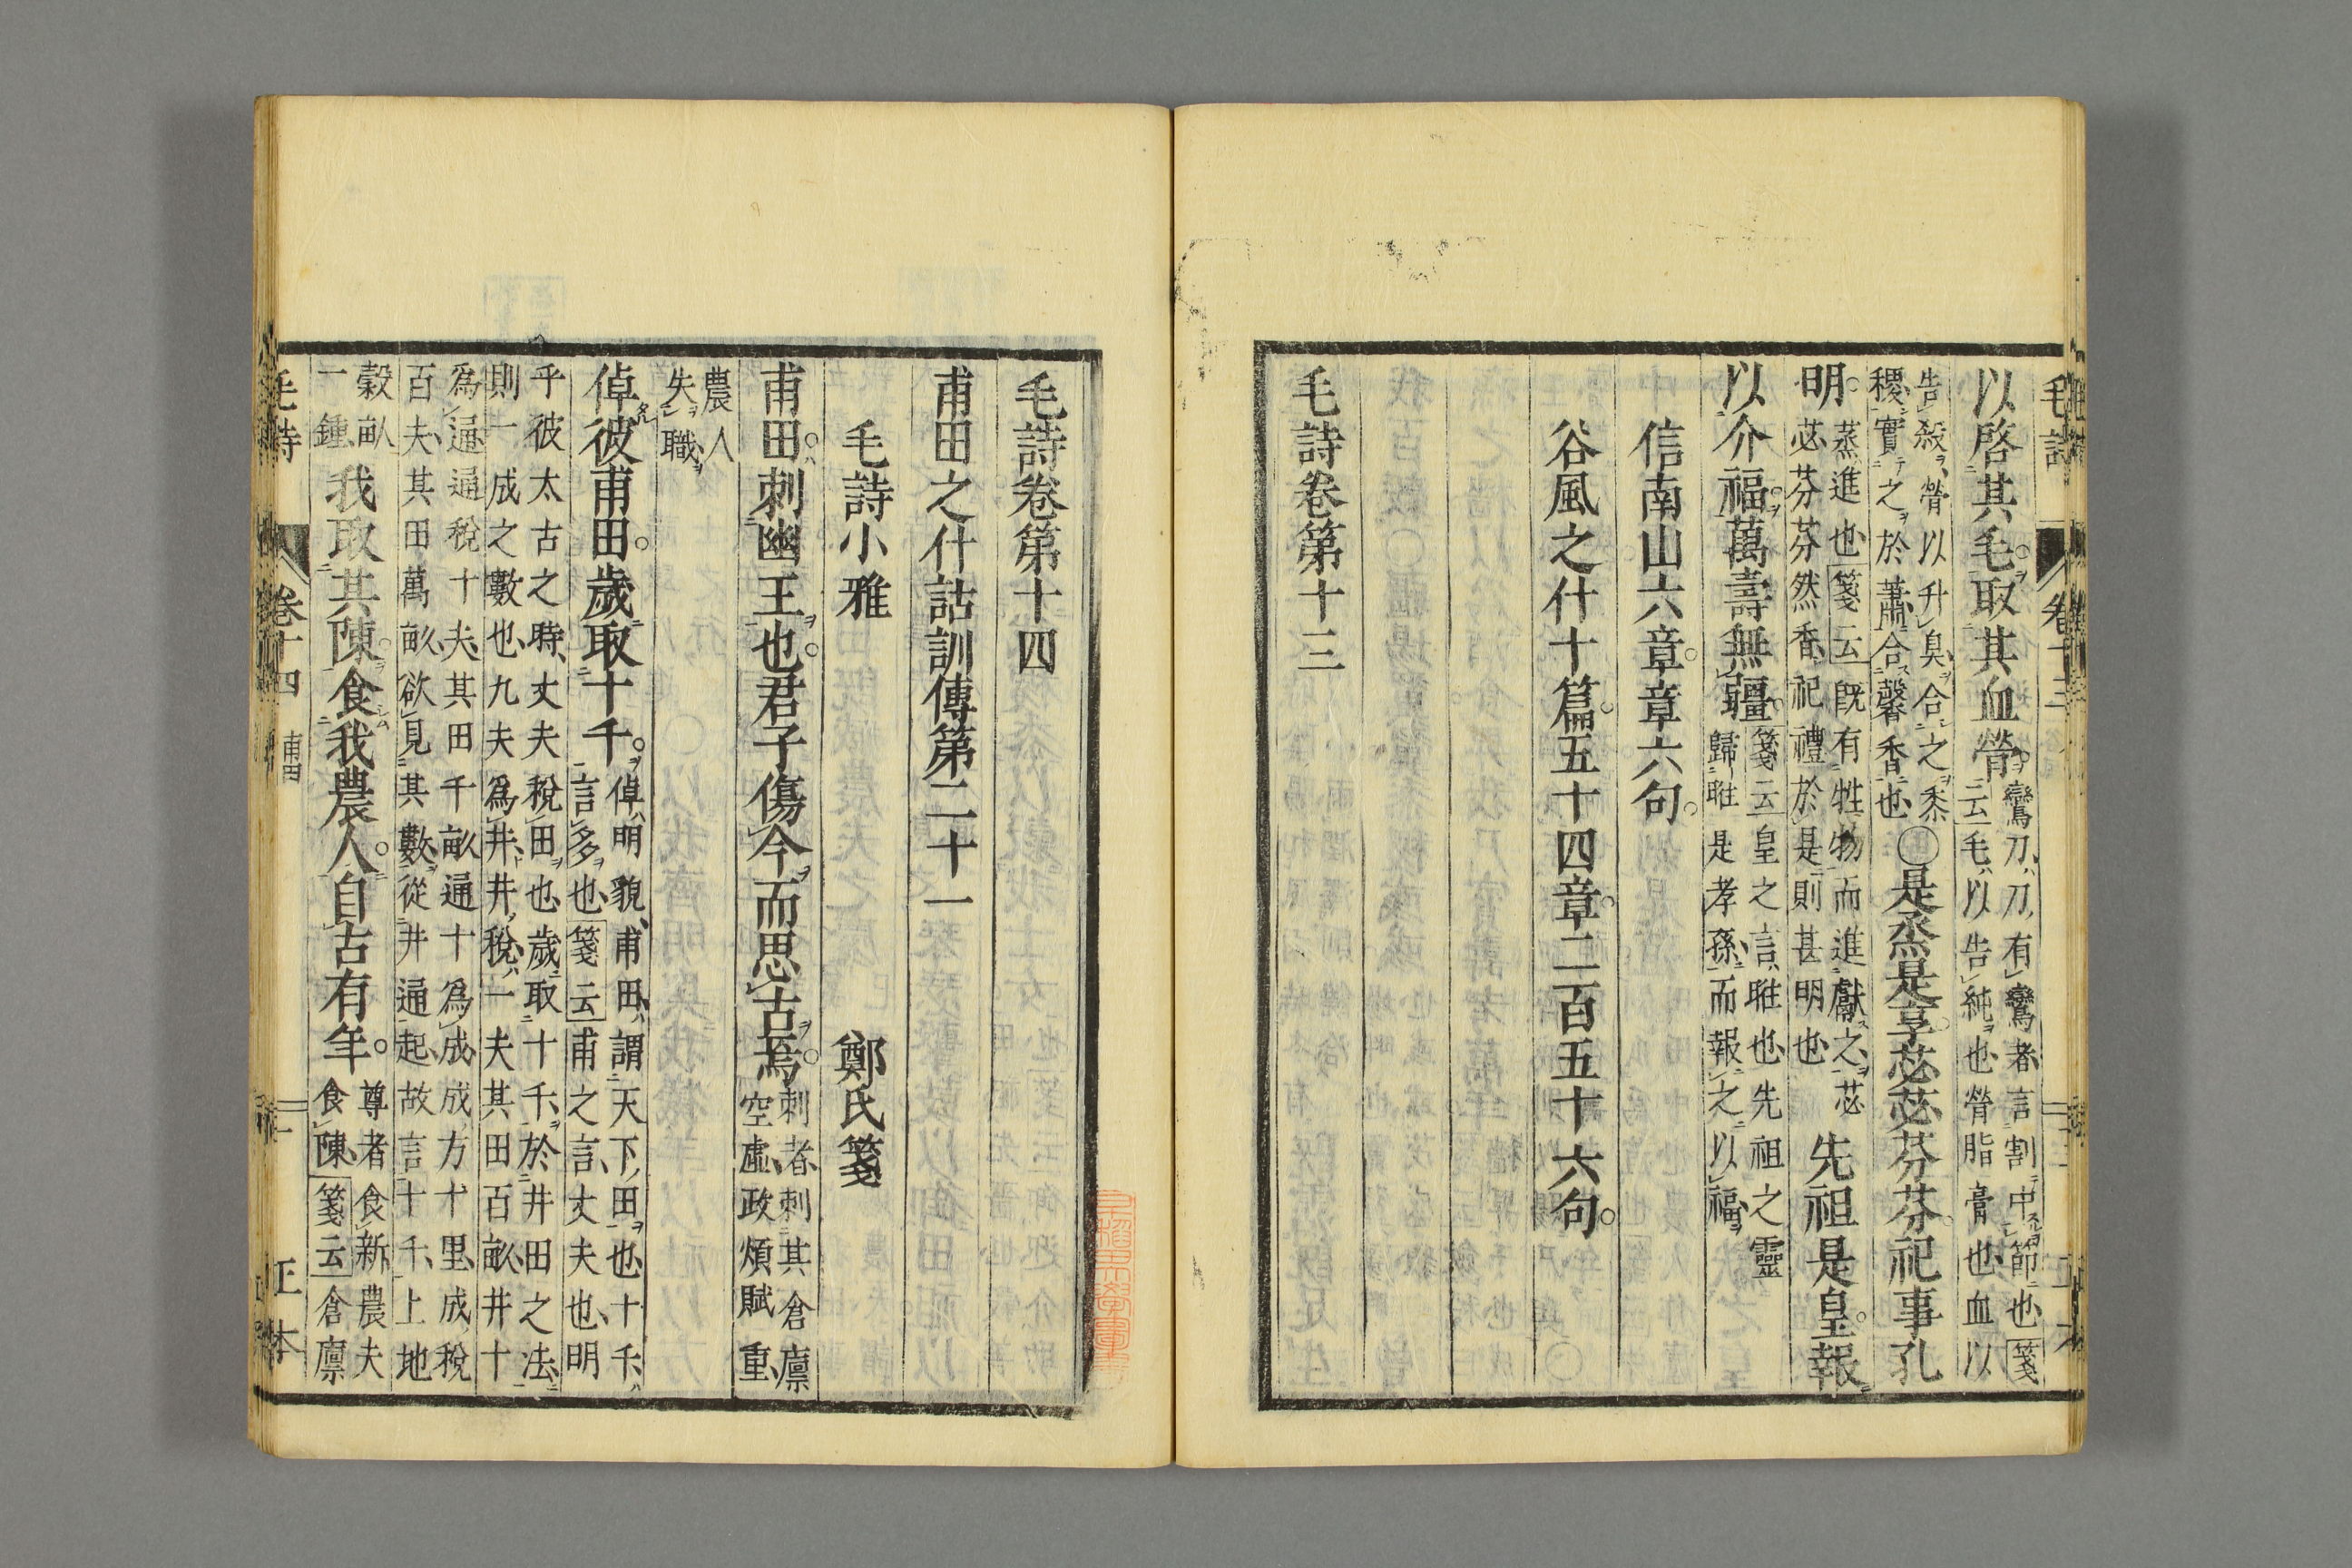 以啓其毛取其血膋鸞刀刀有鸞者言割中節也箋云毛以告純也膋脂膏也血以
告殺膋以升臭合之黍稷實之於蕭合馨香也〇是烝是享苾苾芬芬祀事孔
明蒸進也箋云既有牲物而進獻之苾苾芬芬然香祀禮於是則甚明也先祖是皇報
以介福萬壽無疆箋云皇之言暀也先祖之靈歸暀是孝孫而報之以福
信南山六章章六句
谷風之什十篇五十四章二百五十六句
毛詩卷第十三
毛詩卷第十四
甫田之什詁訓傳第二十一
毛詩小雅 鄭氏箋
甫田刺幽王也君子傷今而思古焉刺者刺其倉廩空虛政煩賦重
農人失職
倬彼甫田歲取十千倬明貌甫田謂天下田也十千言多也箋云甫之言丈夫也明
乎彼太古之時丈夫稅田也歲取十千於井田之法則一成之數也九夫爲井井稅一夫其田百畝井十
爲通通稅十夫其田千畝通十爲成成方十里成稅百夫其田萬畝欲見其數從井通起故言十千上地
穀畝一鍾我取其陳食我農人自古有年尊者食新農夫食陳箋云倉廩
毛詩 卷十四 甫田 二 正本